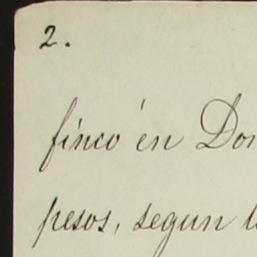 2.
finco én Don
pesos, segun l